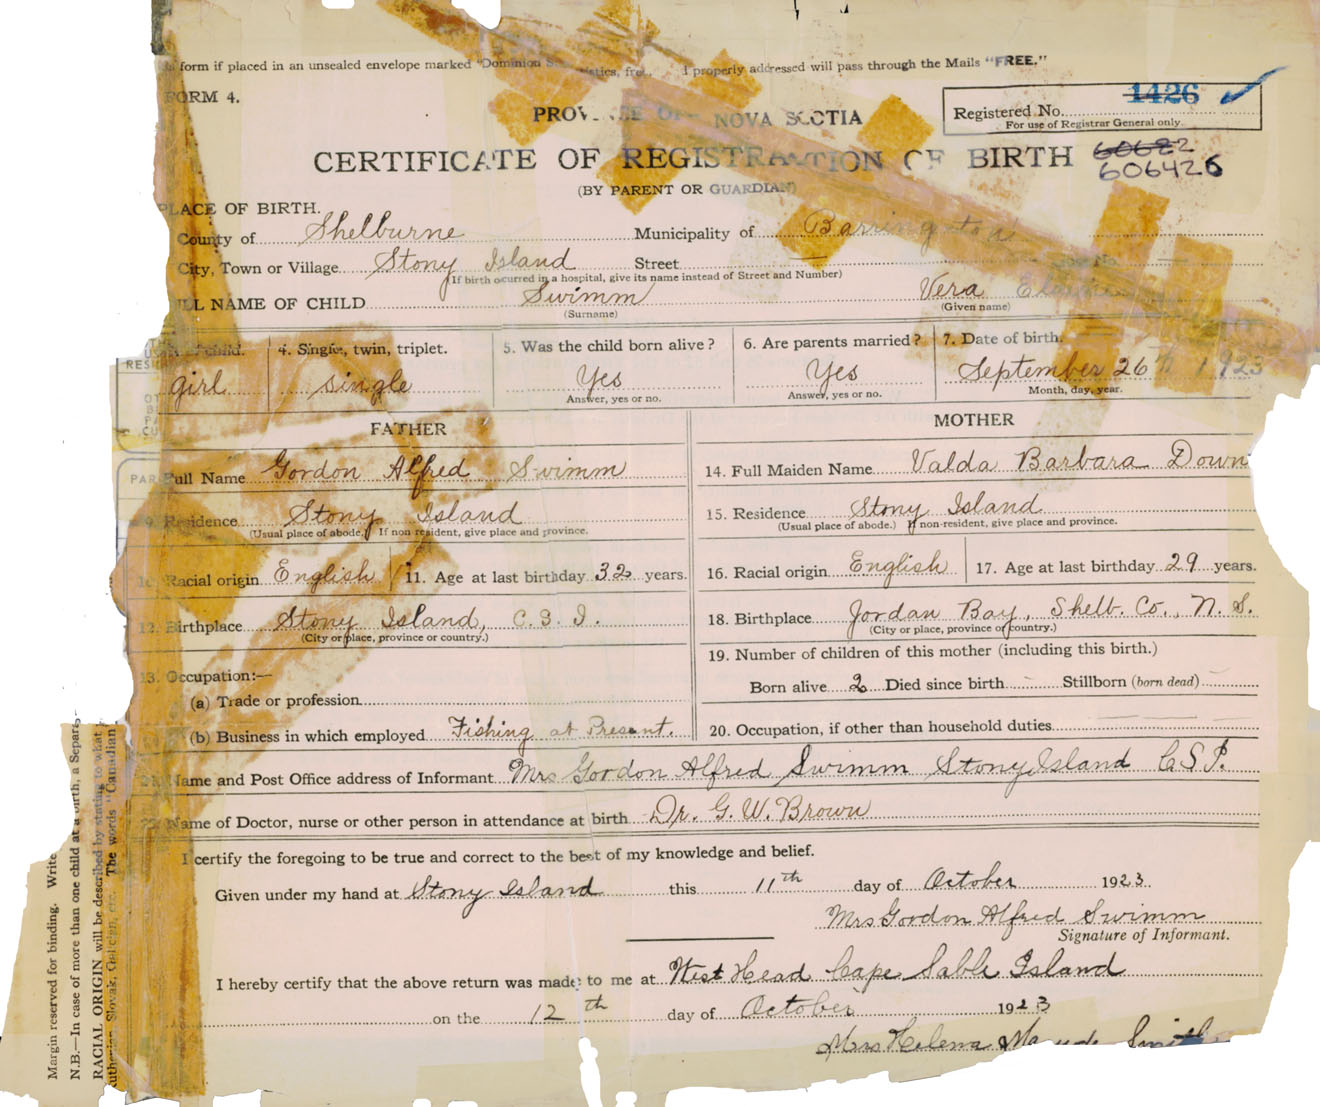 form if placed in an unsealed envelope marked "Dominion Statistics, free," properly addressed will pass through the Mails "FREE."
FORM 4.
1426
Registered No.
For use of Registrar General only.
PROVINCE OF NOVA SCOTIA
CERTIFICATE OF REGISTRATION OF BIRTH
60622
606426
(BY PARENT OR GUARDIAN)
PLACE OF BIRTH.
County of Shelburne Municipality of Barrington
City, Town or Village Stony Island Street
(If birth occurred in a hospital, give its name instead of Street and Number)
FULL NAME OF CHILD Swimm Vera
(Surname) (Given name)
child. 4. Single, twin, triplet. 5. Was the child born alive? 6. Are parents married? 7. Date of birth.
girl single Yes Yes September 26th 1923
Answer, yes or no. Answer, yes or no. Month, day, year.
FATHER MOTHER
Full Name Gordon Alfred Swimm 14. Full Maiden Name Valda Barbara Down
9. Residence Stony Island 15. Residence Stony Island
(Usual place of abode.) If non resident, give place and province. (Usual place of abode.) If non-resident, give place and province.
10. Racial origin English 11. Age at last birthday 32 years. 16. Racial origin English 17. Age at last birthday 29 years.
12. Birthplace Stony Island, C. S. I. 18. Birthplace Jordan Bay, Shelb. Co., N. S.
(City or place, province or country.) (City or place, province or country.)
13. Occupation:— 19. Number of children of this mother (including this birth.)
(a) Trade or profession Born alive 2 Died since birth Stillborn (born dead)
(b) Business in which employed Fishing at Present. 20. Occupation, if other than household duties
21. Name and Post Office address of Informant Mrs Gordon Alfred Swimm Stony Island C. S. I.
Name of Doctor, nurse or other person in attendance at birth Dr. G. W. Brown
I certify the foregoing to be true and correct to the best of my knowledge and belief.
Given under my hand at Stony Island this 11th day of October 1923.
Mrs Gordon Alfred Swimm
Signature of Informant.
I hereby certify that the above return was made to me at West Head Cape Sable Island
on the 12th day of October 1923
Mrs Helena Smith
Margin reserved for binding. Write
N.B.—In case of more than one child at a birth, a Separa
RACIAL ORIGIN will be described by stating to what
Slovak, Galician, etc. The words "Canadian